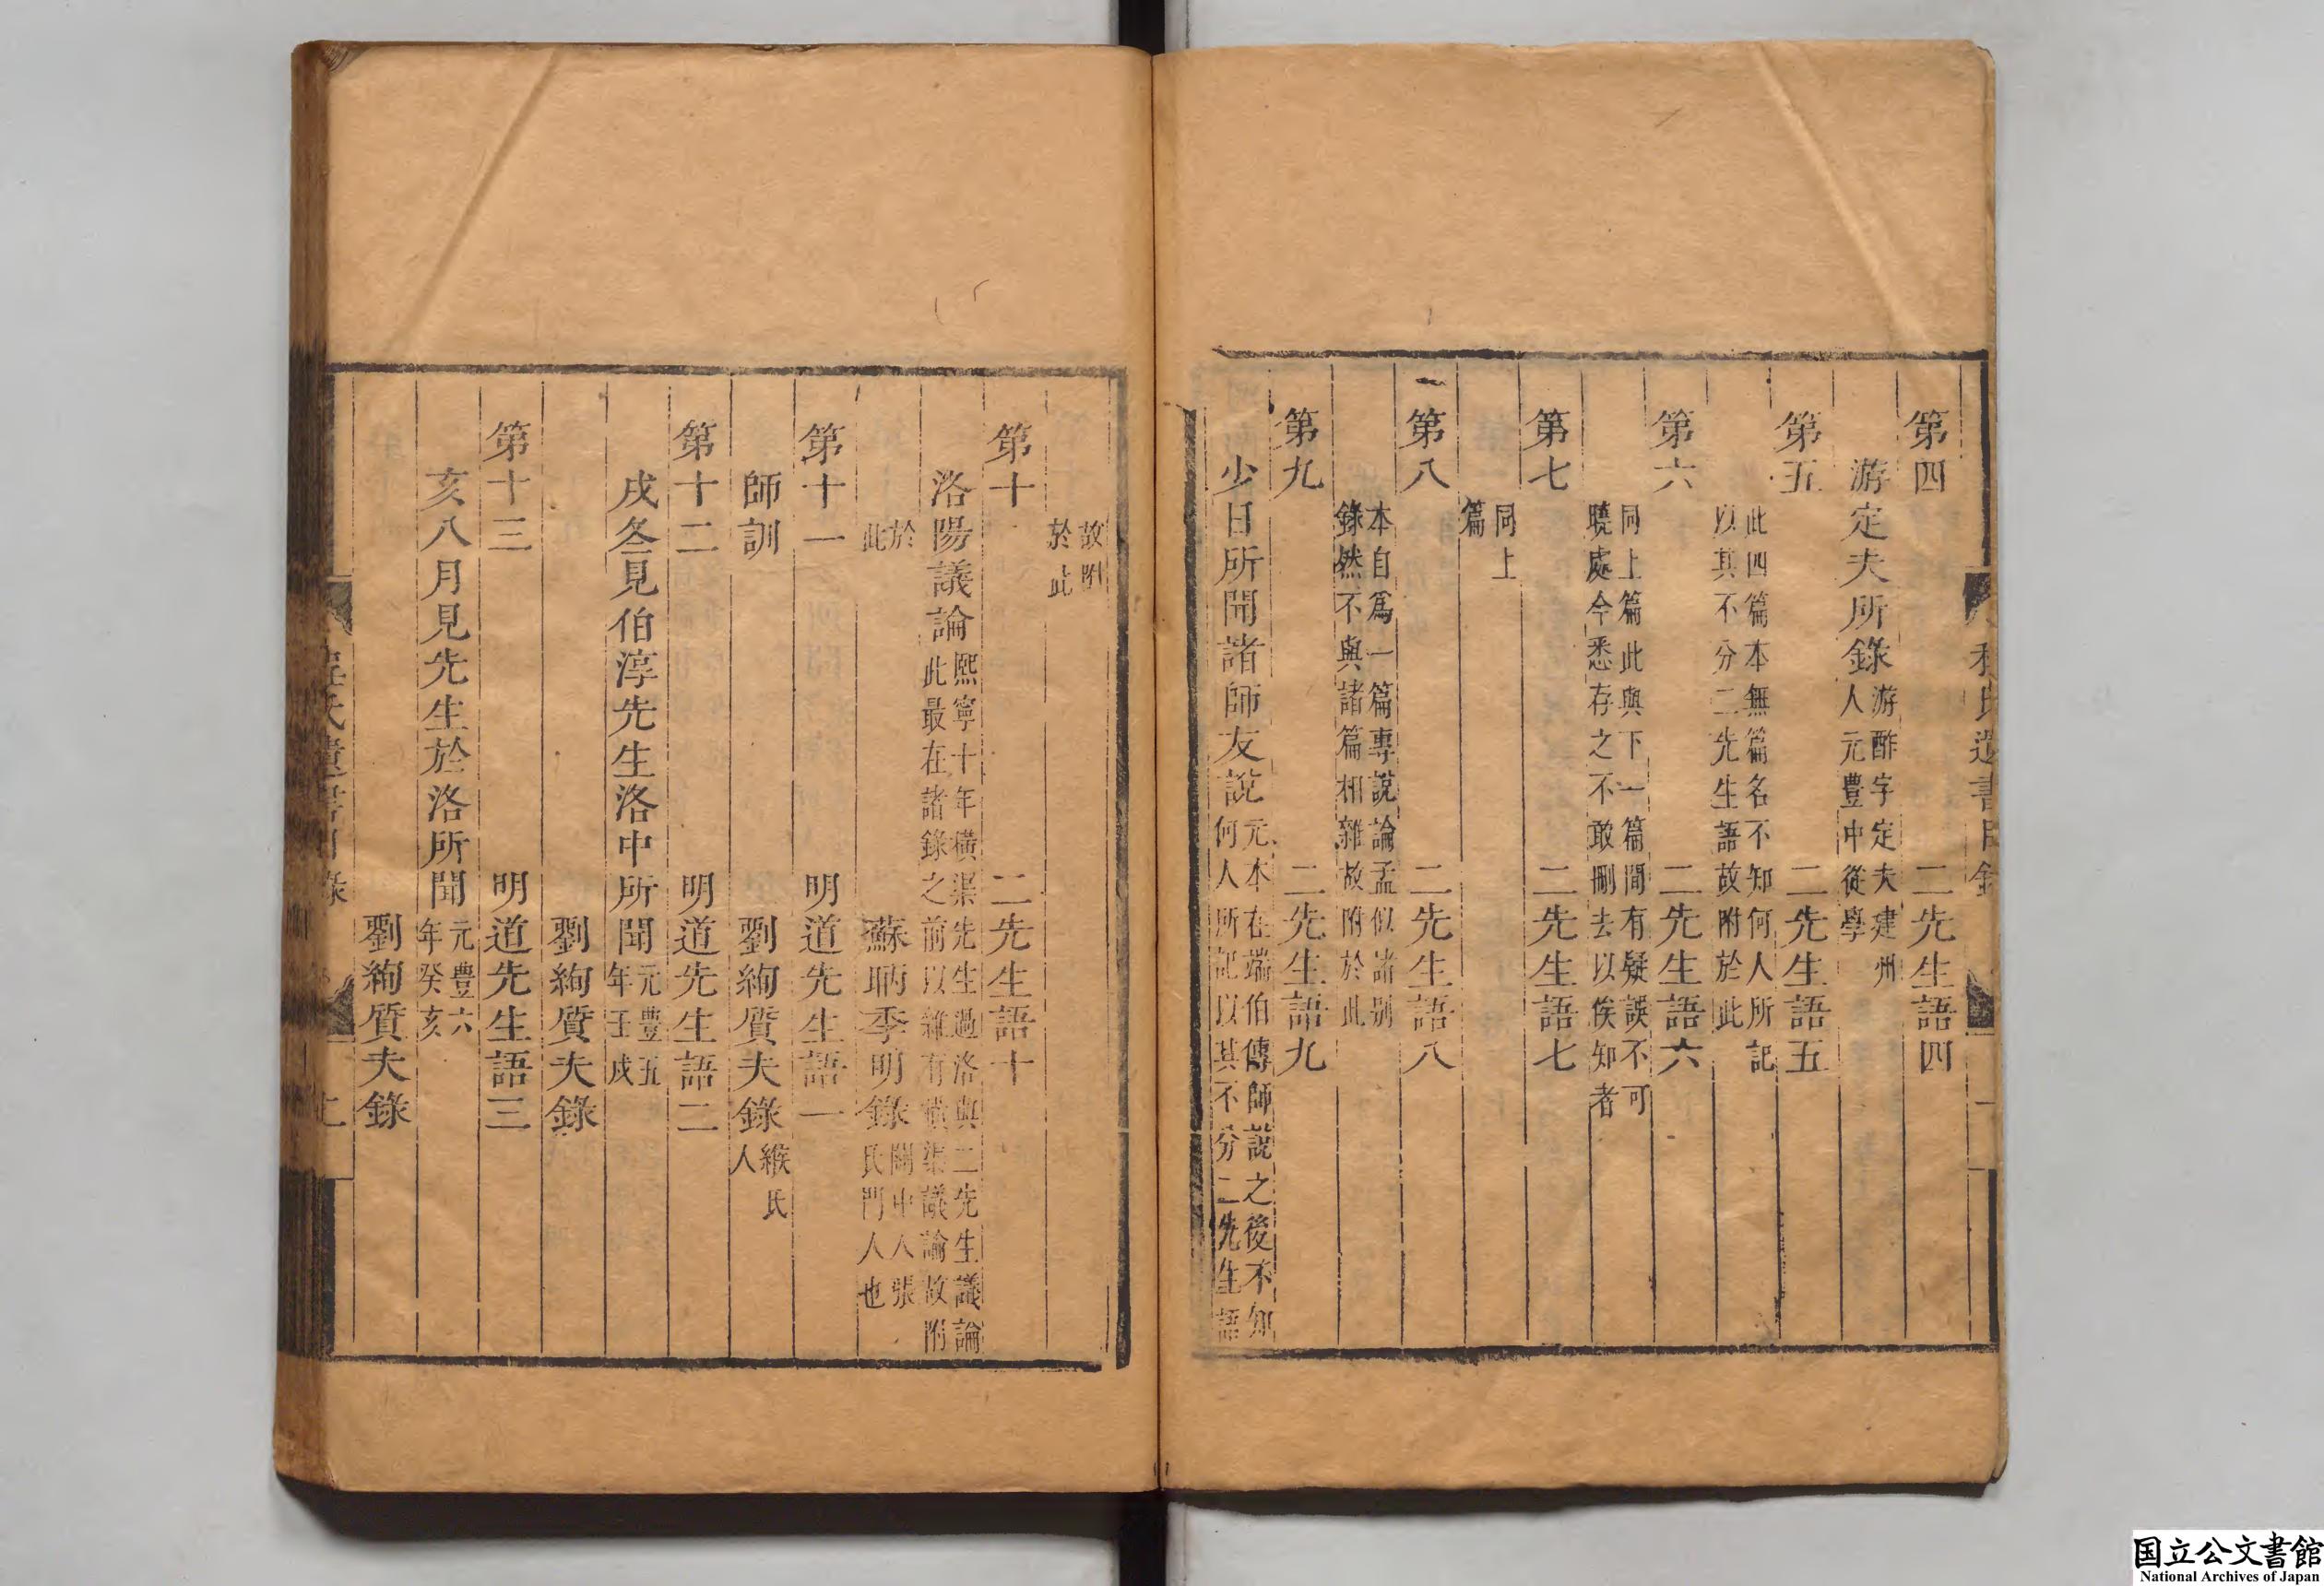 第四 二先生語四
游定夫所錄 游酢字定夫建州
人元豐中從學
第五 二先生語五
此四篇本無篇名不知何人所記
以其不分二先生語故附於此
第六 二先生語六
同上篇此與下一篇間有疑誤不可
曉處今悉存之不敢刪去以俟知者
第七 二先生語七
同上
篇
第八 二先生語八
本自爲一篇專說論孟似諸别
錄然不與諸篇相雜故附於此
第九 二先生語九
少日所聞諸師友說 元本在端伯傳師說之後不知
何人所記以其不分二先生語
故附
於此
第十 二先生語十
洛陽議論 熙寧十年橫渠先生過洛與二先生議論
此最在諸錄之前以雜有橫渠議論故附
於
此
蘇昞季明錄 關中人張
氏門人也
第十一 明道先生語一
師訓 劉絢質夫錄 緱氏
人
第十二 明道先生語二
戌冬見伯淳先生洛中所聞 元豐五
年壬戌
劉絢質夫錄
第十三 明道先生語三
亥八月見先生於洛所聞 元豐六
年癸亥
劉絢質夫錄
国立公文書館
National Archives of Japan